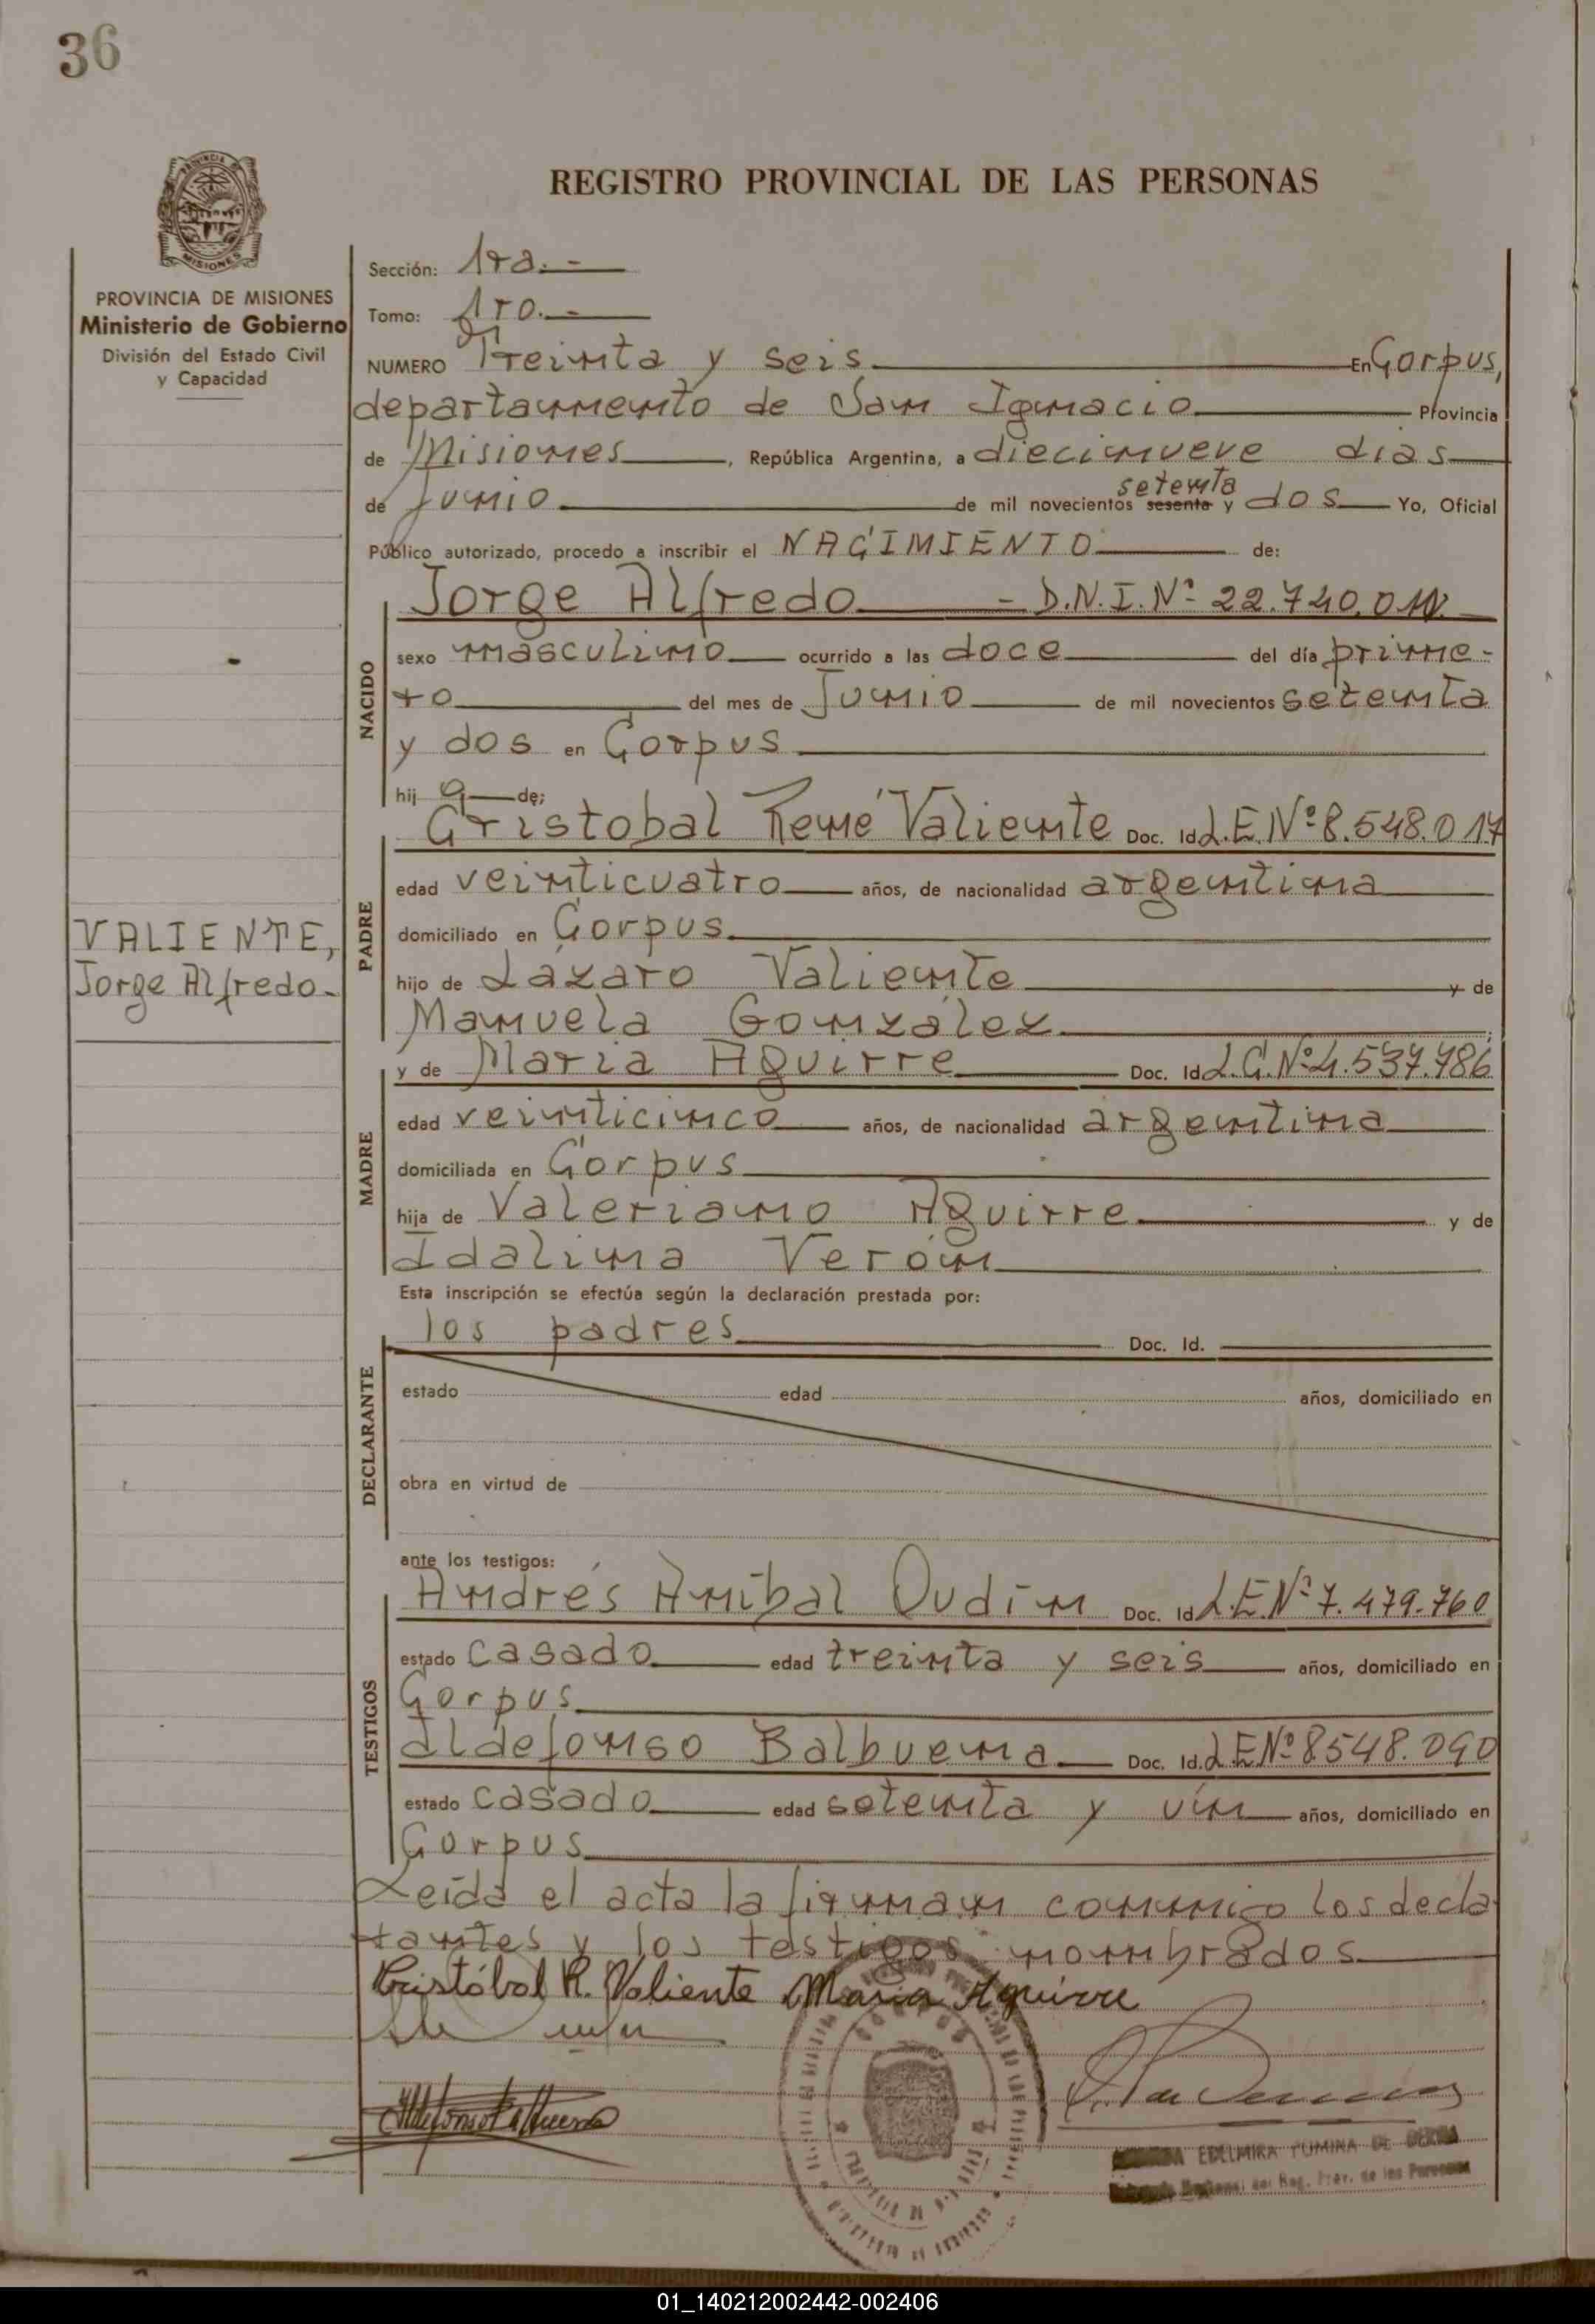 36
REGISTRO PROVINCIAL DE LAS PERSONAS
MISIONES
PROVINCIA DE MISIONES
Ministerio de Gobierno
División del Estado Civil
y Capacidad
Sección: 1ra.-
Tomo: 1ro.-
NUMERO Treinta y seis En Corpus,
departamento de San Ignacio Provincia
de Misiones, República Argentina, a diecinueve días
de Junio de mil novecientos sesenta setenta y dos Yo, Oficial
Público autorizado, procedo a inscribir el NACIMIENTO de:
NACIDO
Jorge Alfredo - D.N.I. Nº 22.740.010
sexo masculino ocurrido a las doce del día prime-
ro del mes de Junio de mil novecientos setenta
y dos en Corpus
hij o de:
PADRE
Cristobal René Valiente Doc. Id. L.E. Nº 8.548.017
edad veinticuatro años, de nacionalidad argentina
domiciliado en Corpus
VALIENTE,
Jorge Alfredo-
hijo de Lázaro Valiente y de
Manuela González
MADRE
y de María Aguirre Doc. Id. L.C. Nº 4.537.786
edad veinticinco años, de nacionalidad argentina
domiciliada en Corpus
hija de Valeriano Aguirre y de
Idalina Verón
Esta inscripción se efectúa según la declaración prestada por:
DECLARANTE
los padres Doc. Id.
estado edad años, domiciliado en
obra en virtud de
ante los testigos:
TESTIGOS
Andrés Aníbal Oudín Doc. Id. L.E. Nº 7.479.760
estado casado edad treinta y seis años, domiciliado en
Corpus
Ildefonso Balbuena Doc. Id. L.E. Nº 8548.090
estado casado edad setenta y un años, domiciliado en
Corpus
Leída el acta la firman conmigo los decla-
rantes y los testigos nombrados
Cristóbal R. Valiente María Aguirre
Ildefonso Balbuena
EDELMIRA ROMINA DE
Reg. Prov. de las Personas
01_140212002442-002406